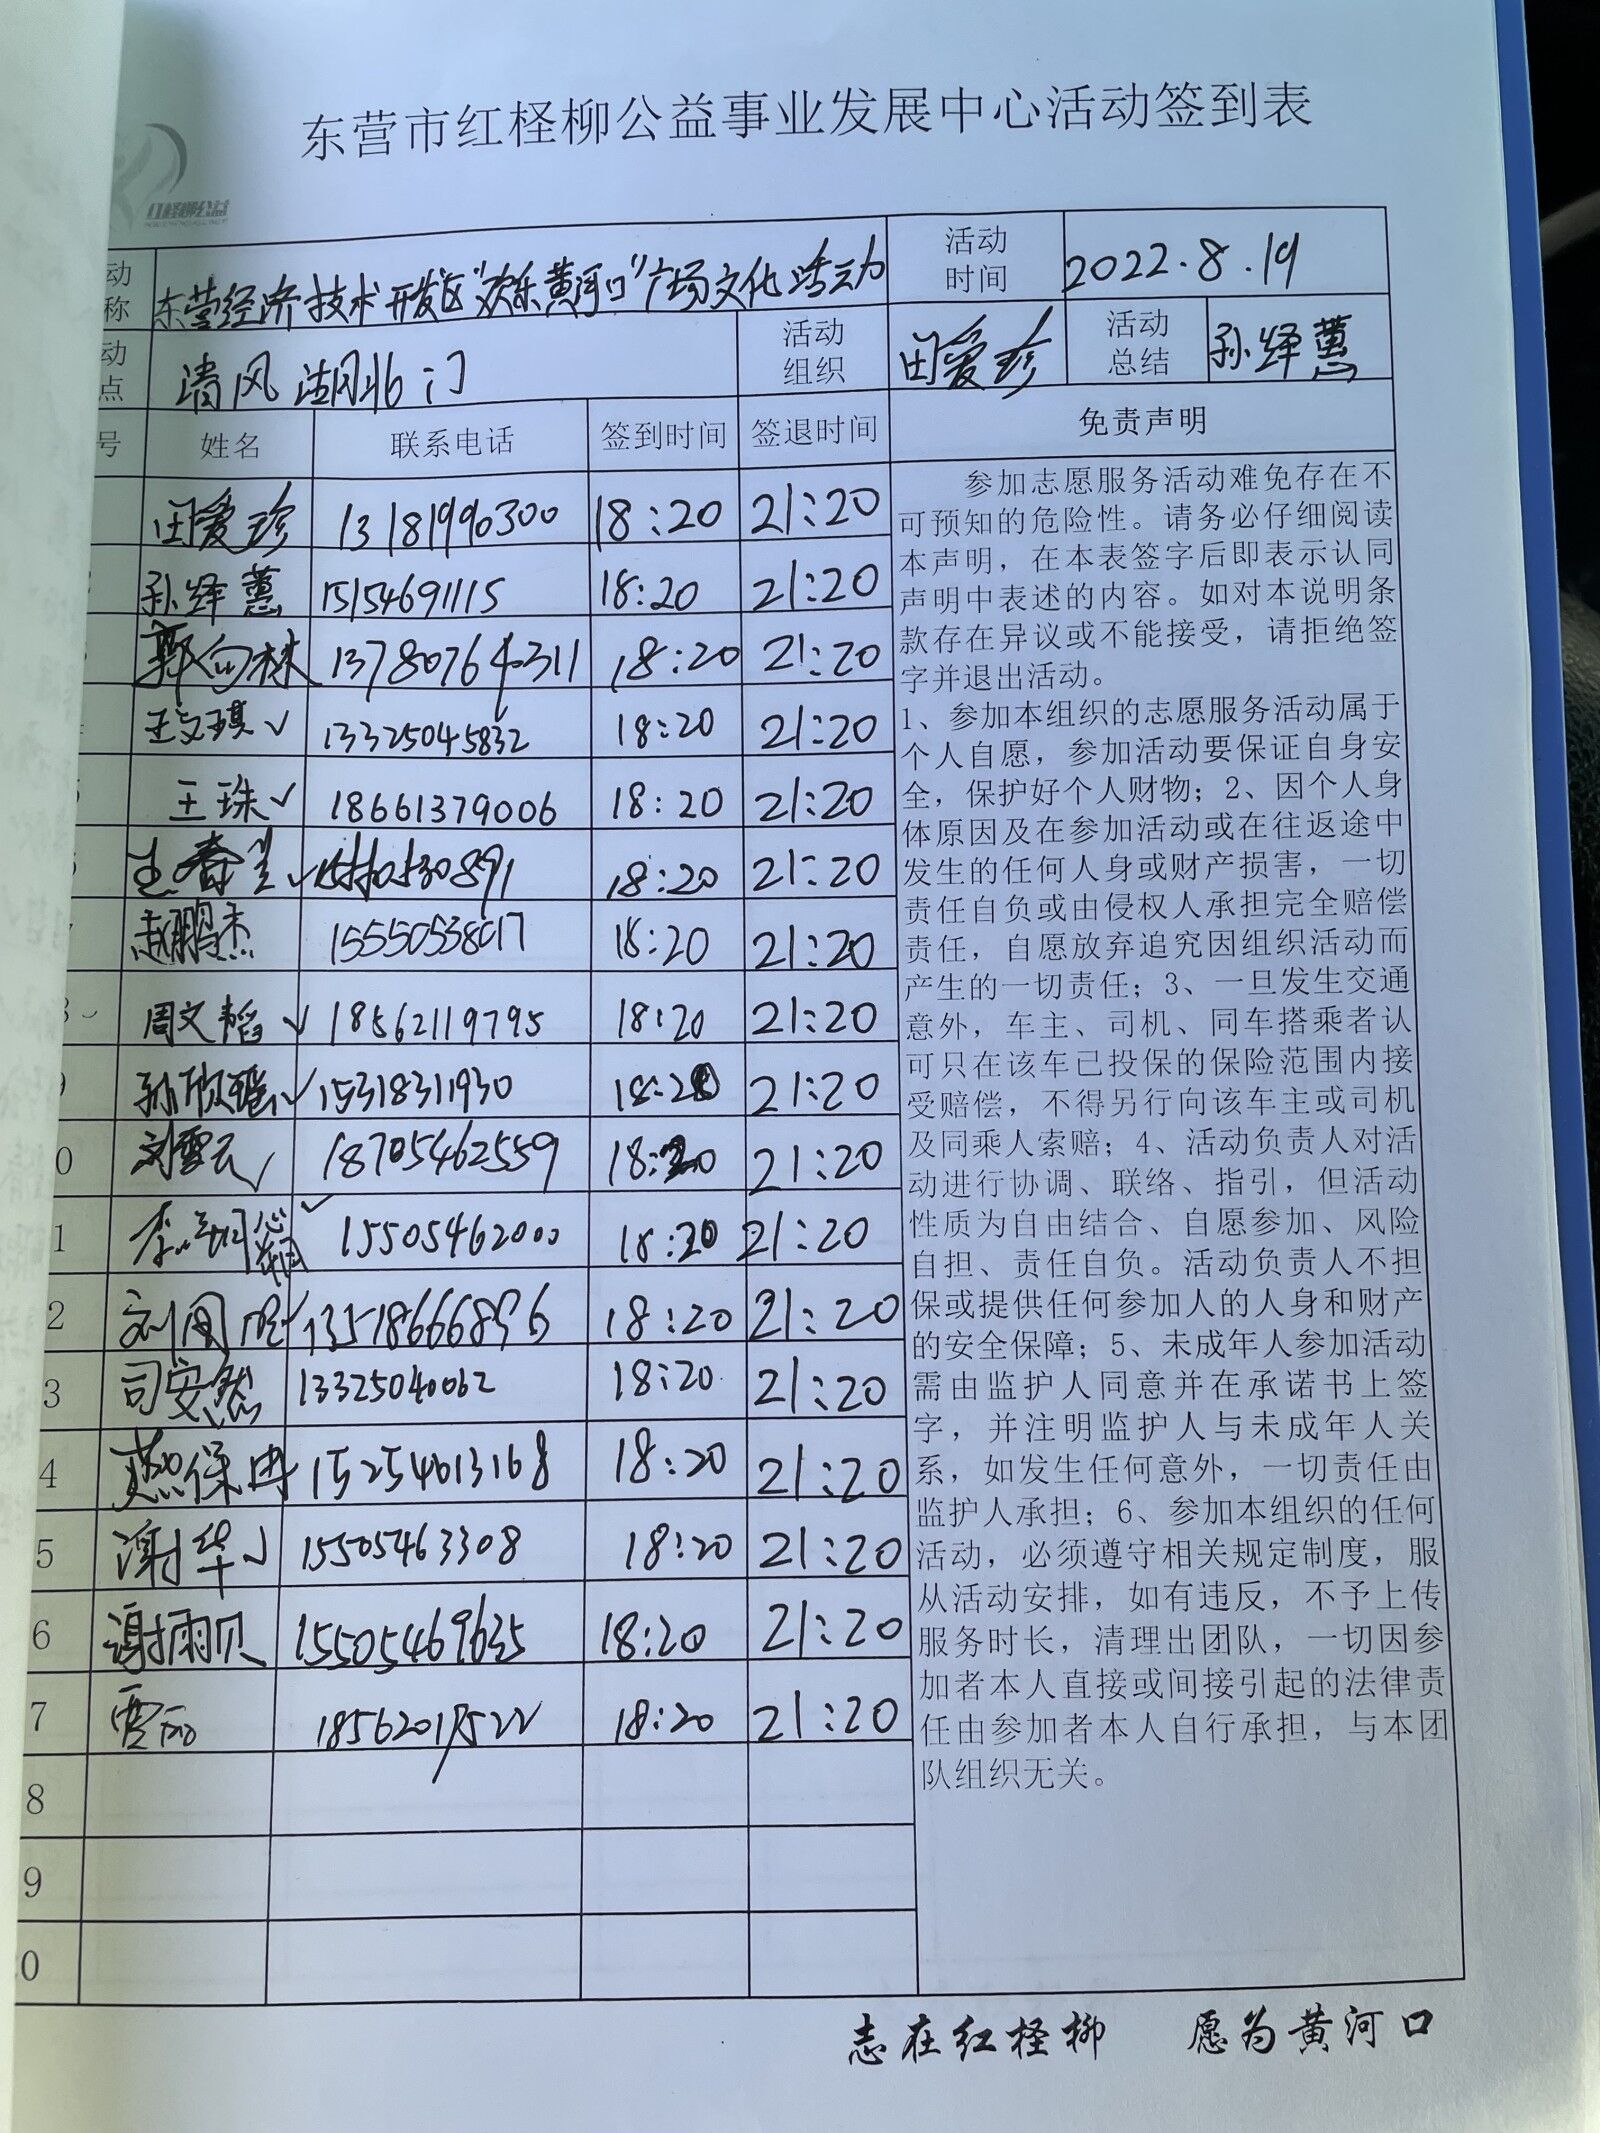 东营市红柽柳公益事业发展中心活动签到表
红柽柳公益
动称 东营经济技术开发区“欢乐黄河口”广场文化活动 活动时间 2022.8.19
动点 清风湖北门 活动组织 田爱珍 活动总结 孙绎蕙
号 姓名 联系电话 签到时间 签退时间 免责声明
田爱珍 13181990300 18:20 21:20
孙绎蕙 15154691115 18:20 21:20
郭向林 13780764311 18:20 21:20
王文琪✓ 13325045832 18:20 21:20
王珠✓ 18661379006 18:20 21:20
18:20 21:20
7 赵鹏杰 15550538017 18:20 21:20
8 周文韬✓ 18562119795 18:20 21:20
9 孙欣瑶✓ 15318311930 18:20 21:20
0 刘雪云✓ 18705462559 18:20 21:20
1 李 ✓ 15505462000 18:20 21:20
2 刘 18:20 21:20
3 司安然 13325040062 18:20 21:20
4 燕保冉 15254613168 18:20 21:20
5 谢华✓ 15505463308 18:20 21:20
6 谢雨贝 15505469635 18:20 21:20
7 贾 18:20 21:20
8
9
20
参加志愿服务活动难免存在不
可预知的危险性。请务必仔细阅读
本声明，在本表签字后即表示认同
声明中表述的内容。如对本说明条
款存在异议或不能接受，请拒绝签
字并退出活动。
1、参加本组织的志愿服务活动属于
个人自愿，参加活动要保证自身安
全，保护好个人财物；2、因个人身
体原因及在参加活动或在往返途中
发生的任何人身或财产损害，一切
责任自负或由侵权人承担完全赔偿
责任，自愿放弃追究因组织活动而
产生的一切责任；3、一旦发生交通
意外，车主、司机、同车搭乘者认
可只在该车已投保的保险范围内接
受赔偿，不得另行向该车主或司机
及同乘人索赔；4、活动负责人对活
动进行协调、联络、指引，但活动
性质为自由结合、自愿参加、风险
自担、责任自负。活动负责人不担
保或提供任何参加人的人身和财产
的安全保障；5、未成年人参加活动
需由监护人同意并在承诺书上签
字，并注明监护人与未成年人关
系，如发生任何意外，一切责任由
监护人承担；6、参加本组织的任何
活动，必须遵守相关规定制度，服
从活动安排，如有违反，不予上传
服务时长，清理出团队，一切因参
加者本人直接或间接引起的法律责
任由参加者本人自行承担，与本团
队组织无关。
志在红柽柳 愿为黄河口